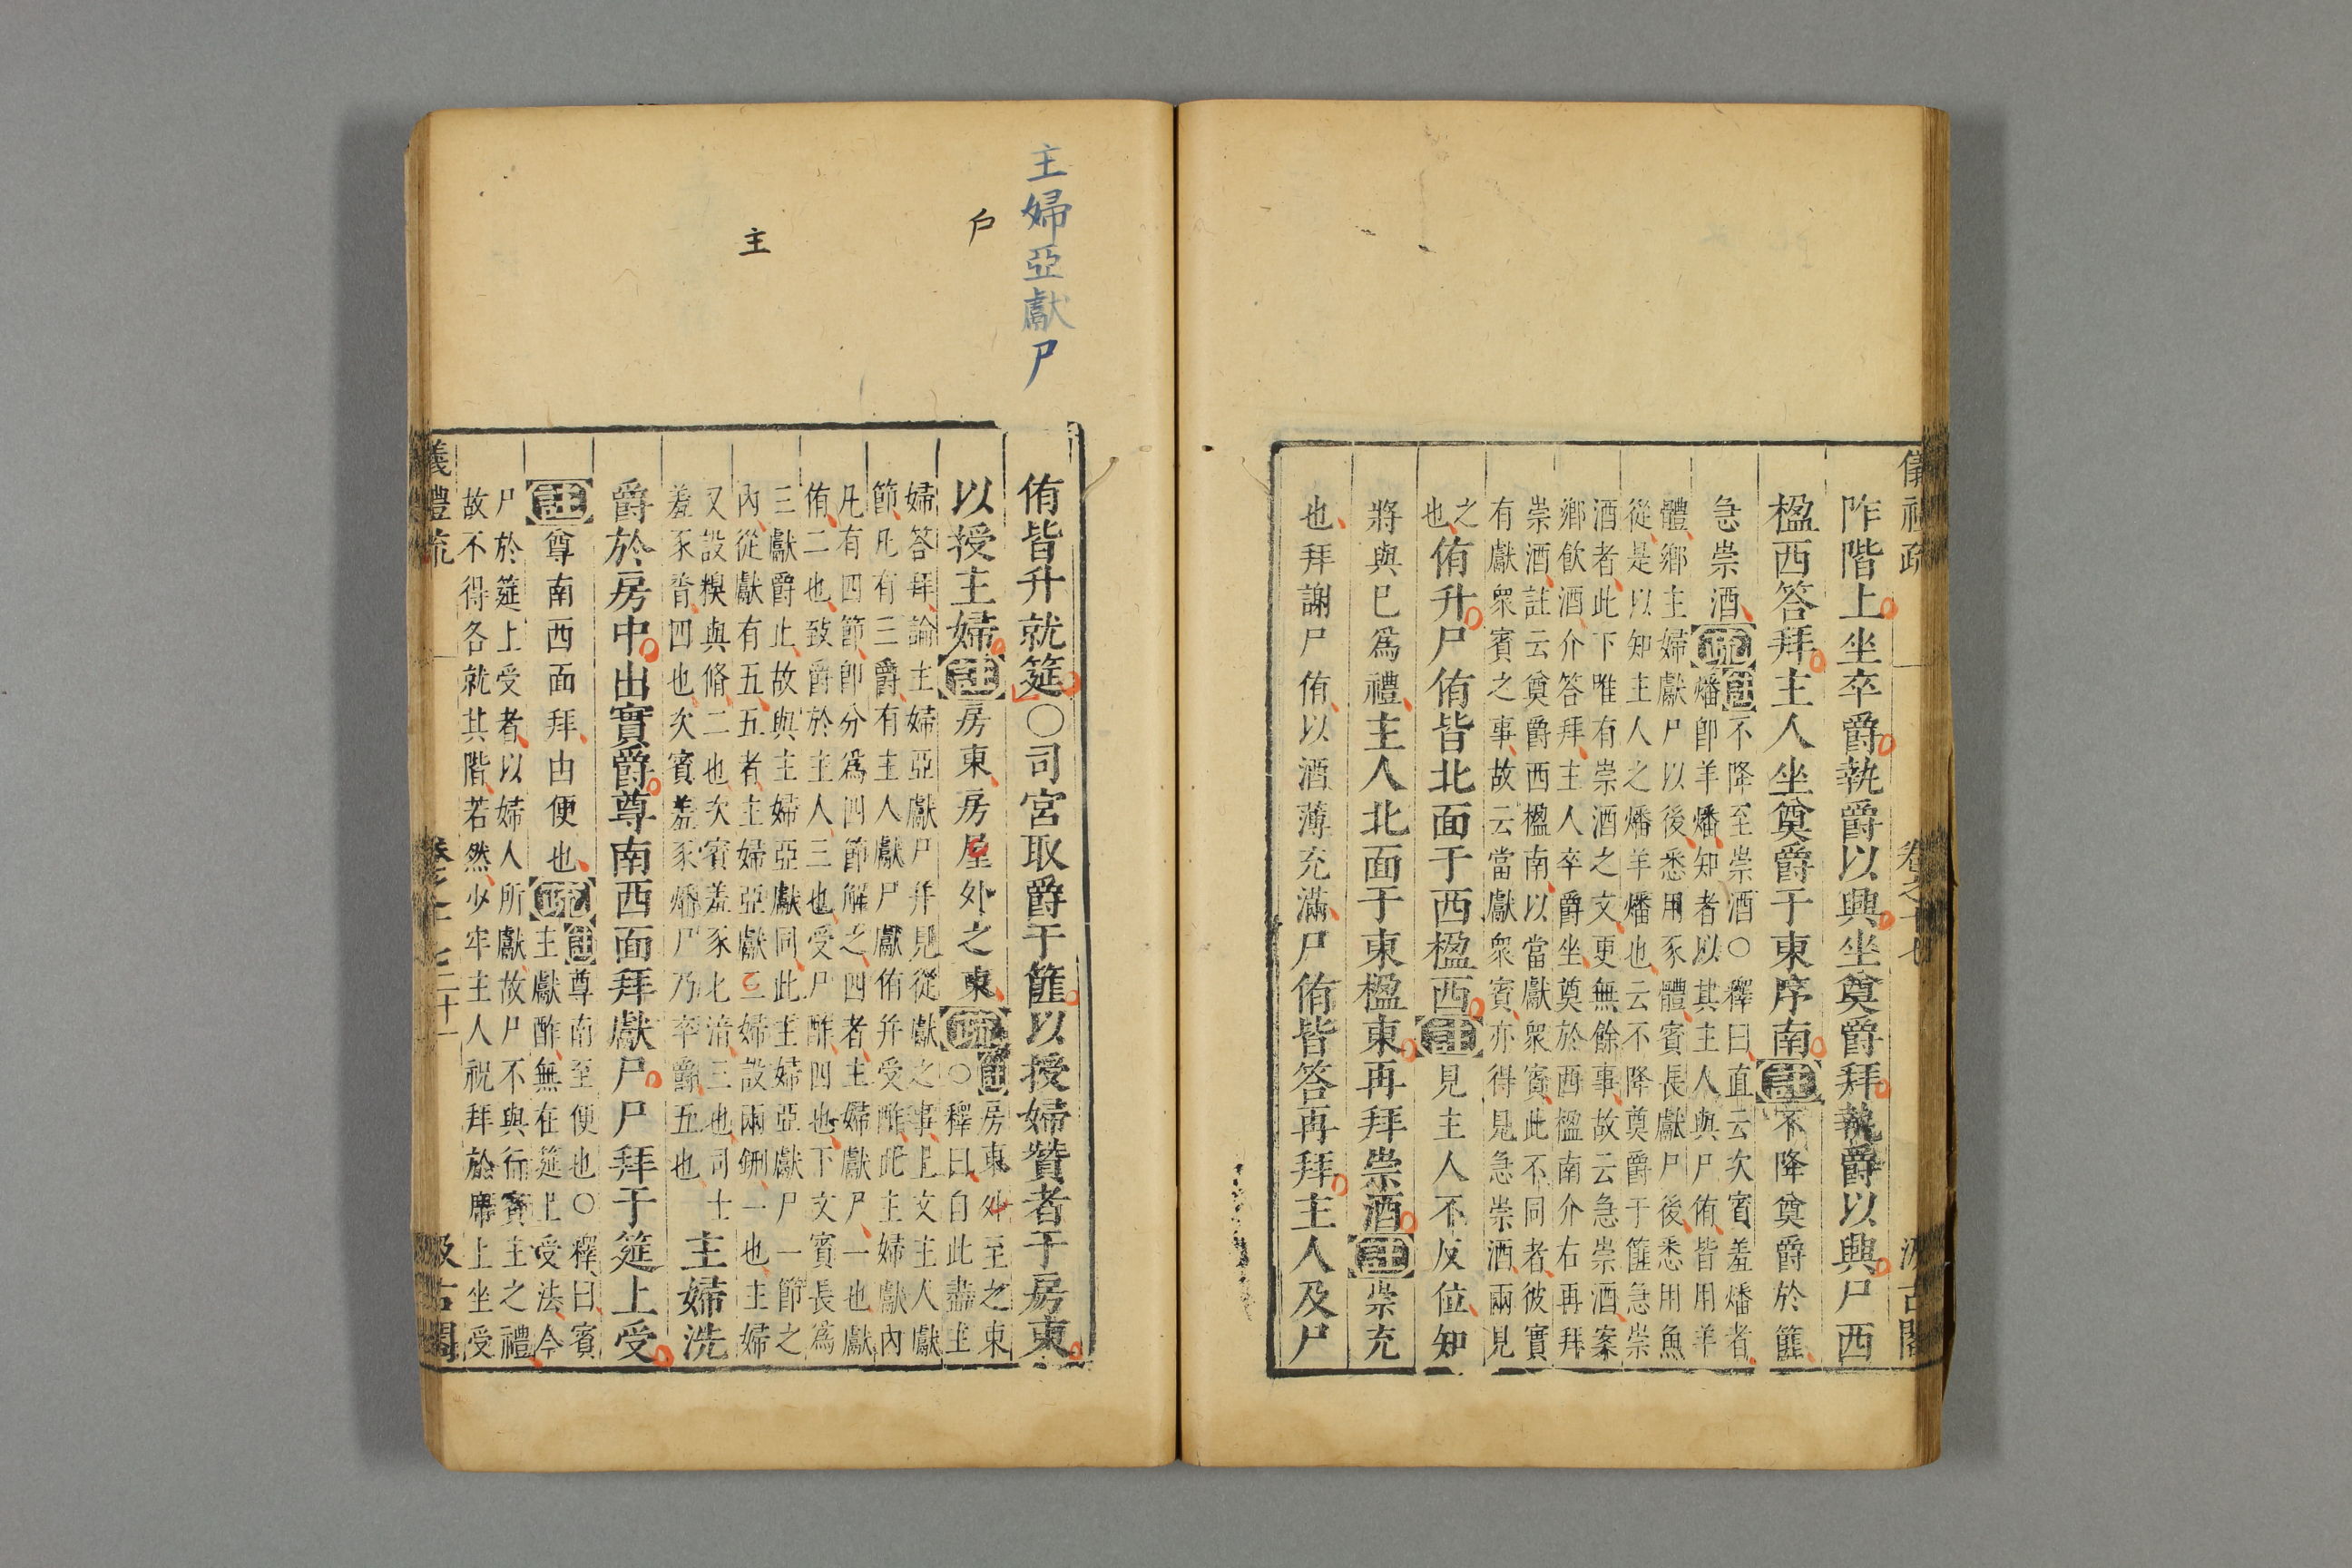 儀禮疏 卷之十七 汲古閣
阼階上坐卒爵執爵以興坐奠爵拜執爵以興尸西
楹西答拜主人坐奠爵于東序南註不降奠爵於篚
急崇酒疏註不降至崇酒○釋曰直云次賓羞燔者
燔卽羊燔知者以其主人與尸侑皆用羊
體鄉主婦獻尸以後悉用豕體賓長獻尸後悉用魚
從是以知主人之燔羊燔也云不降奠爵于篚急崇
酒者此下唯有崇酒之文更無餘事故云急崇酒案
鄉飲酒介答拜主人卒爵坐奠於西楹南介右再拜
崇酒註云奠爵西楹南以當獻眾賓此不同者彼實
有獻眾賓之事故云當獻眾賓亦得見急崇酒兩見
之也侑升尸侑皆北面于西楹西註見主人不反位知
將與已爲禮主人北面于東楹東再拜崇酒註崇充
也拜謝尸侑以酒薄充滿尸侑皆答再拜主人及尸
主婦亞獻尸
户
主
侑皆升就筵○司宮取爵于篚以授婦贊者于房東
以授主婦註房東房屋外之東疏註房東外至之東
○釋曰自此盡主
婦答拜論主婦亞獻尸并見從獻之事上文主人獻
節凡有三爵有主人獻尸獻侑并受酢此主婦獻內
凡有四節卽分爲四節解之四者主婦獻尸一也獻
侑二也致爵於主人三也受尸酢四也下文賓長爲
三獻爵止故與主婦亞獻同此主婦亞獻尸一節之
內從獻有五五者主婦亞獻二婦設兩鉶一也主婦
又設糗與脩二也次賓羞豕匕湆三也司士
羞豕脀四也次賓羞豕燔尸乃卒爵五也主婦洗
爵於房中出實爵尊南西面拜獻尸尸拜于筵上受
註尊南西面拜由便也疏註尊南至便也○釋曰賓
主獻酢無在筵上受法今
尸於筵上受者以婦人所獻故尸不與行賓主之禮
故不得各就其階若然少牢主人祝拜於席上坐受
儀禮疏 卷之十七 二十一 汲古閣